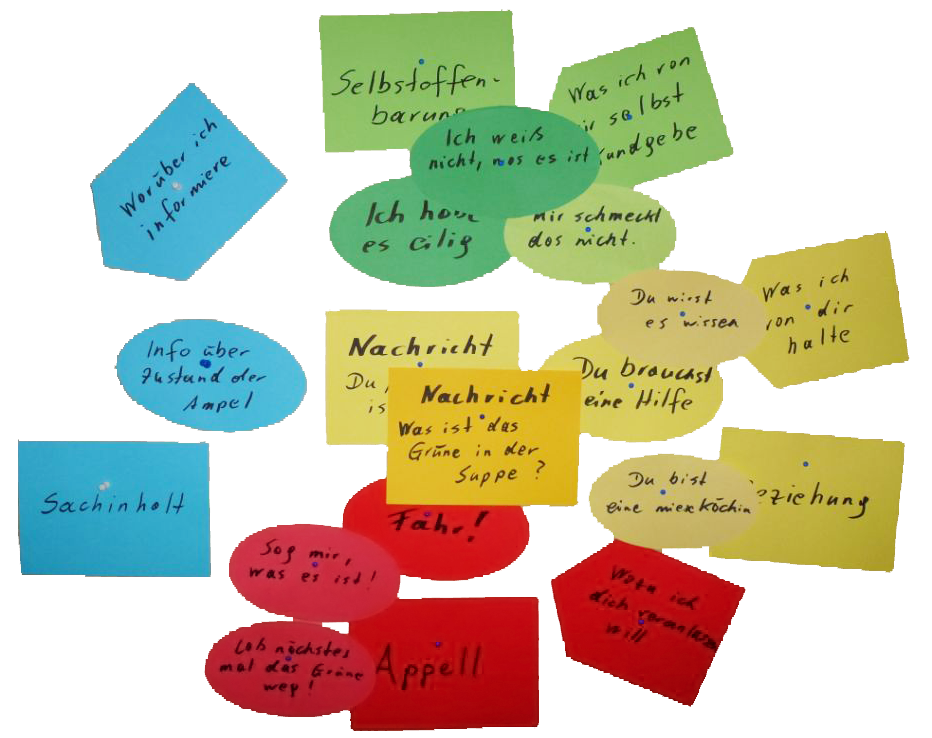 Selbstoffen-
barung
Was ich von
selbst
kundgebe
Ich weiß
nicht, was es ist
Ich habe
es eilig
mir schmeckt
das nicht.
Worüber ich
informiere
Info über
Zustand der
Ampel
Sachinhalt
Nachricht
Du
is
Nachricht
Was ist das
Grüne in der
Suppe ?
Du wirst
es wissen
Was ich
von dir
halte
Du brauchst
eine Hilfe
Du bist
eine miese Köchin
Beziehung
Fahr!
Sag mir,
was es ist!
Lab nächstes
mal das Grüne
weg!
Appell
Wozu ich
dich veranlassen
will